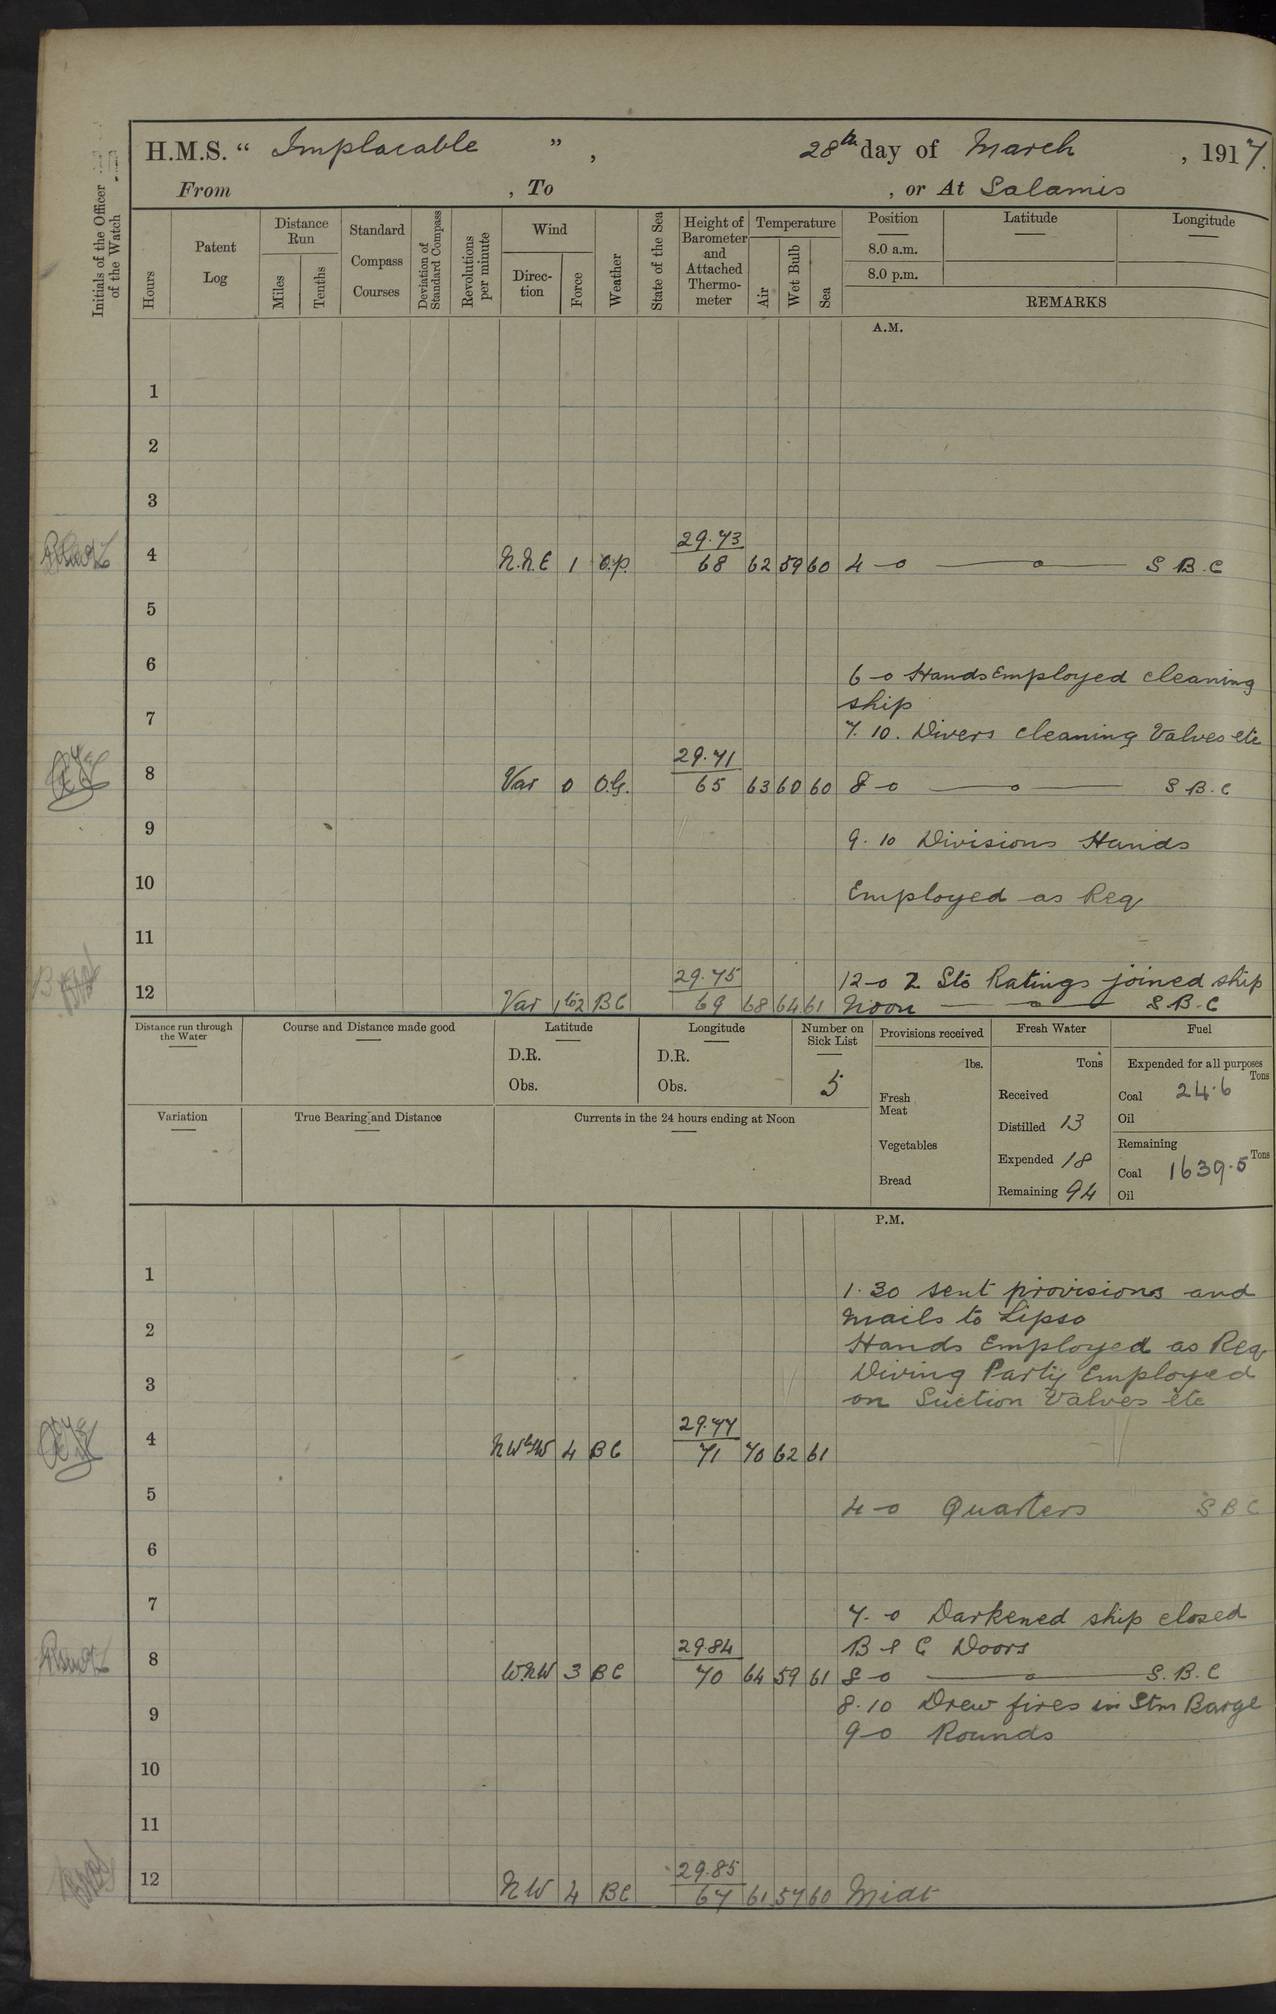 H.M.S. “ Implacable ” , 28th day of March , 1917.
From , To , or At Salamis
Initials of the Officer of the Watch
Hours
Patent Log
Distance Run
Miles
Tenths
Standard Compass Courses
Deviation of Standard Compass
Revolutions per minute
Wind
Direc-tion
Force
Weather
State of the Sea
Height of Barometer and Attached Thermo-meter
Temperature
Air
Wet Bulb
Sea
Position
8.0 a.m.
8.0 p.m.
Latitude
Longitude
REMARKS
A.M.
1
2
3
29.73
4 N.N.E 1 O.P. 68 62 59 60 4-0 S B.C
5
6
6-0 Hands Employed cleaning
ship
7
7.10. Divers cleaning Valves etc
29.71
8 Var 0 O.G. 65 63 60 60 8-0 S B.C
9
9.10 Divisions Hands
10
Employed as Req
11
29.75 12-0 2 Sto Ratings joined ship
12 Var 1to2 BC 69 68 64 61 Noon S B.C
Distance run through the Water
Course and Distance made good
Latitude
D.R.
Obs.
Longitude
D.R.
Obs.
Number on Sick List
5
Provisions received
lbs.
Fresh Meat
Vegetables
Bread
Fresh Water
Tons
Received
Distilled 13
Expended 18
Remaining 94
Fuel
Expended for all purposes
Tons
Coal 24.6
Oil
Remaining
Tons
Coal 1639.5
Oil
Variation
True Bearing and Distance
Currents in the 24 hours ending at Noon
P.M.
1
1.30 sent provisions and
2
mails to Lipso
Hands Employed as Req
3
Diving Party Employed
on Suction Valves etc
29.77
4 NWbyW 4 BC 71 70 62 61
5
4-0 Quarters S B C
6
7
7.-0 Darkened ship closed
29.84 B & C Doors
8 W.NW 3 BC 70 64 59 61 8-0 S.B.C
8.10 Drew fires in Stm Barge
9
9-0 Rounds
10
11
29.85
12 NW 4 BC 67 61 57 60 Midt